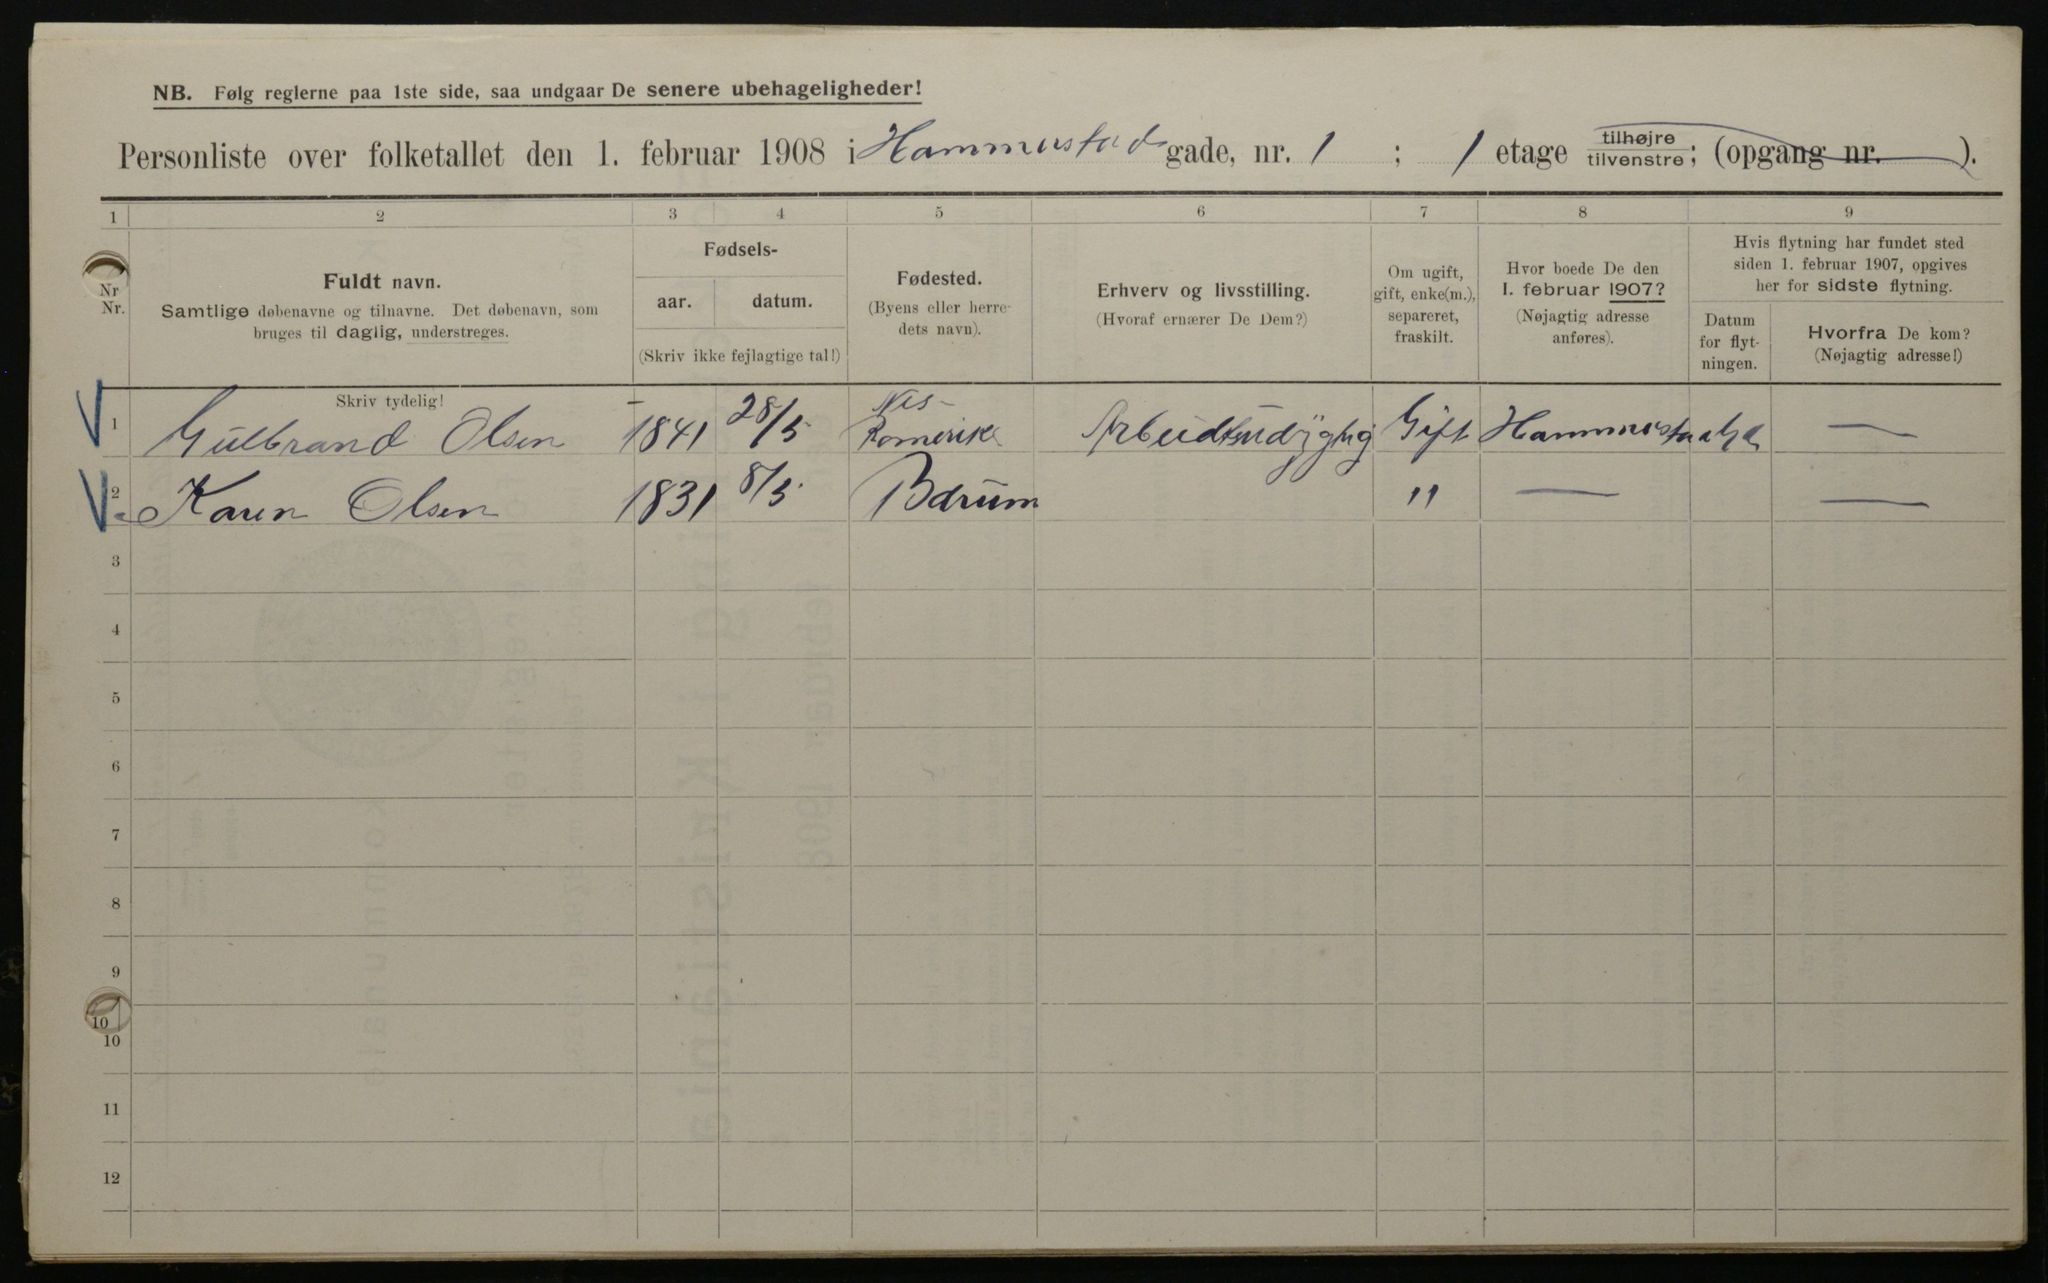 NB. Følg reglerne paa 1ste side, saa undgaar De senere ubehageligheder!
Personliste over folketallet den 1. februar 1908 i Hammerstads gade, nr. 1 ; 1 etage tilhøjre tilvenstre; (opgang nr. ).
1 2 3 4 5 6 7 8 9
Nr
Nr.
Fuldt navn.
Samtlige døbenavne og tilnavne. Det døbenavn, som
bruges til daglig, understreges.
Fødsels-
aar. datum.
(Skriv ikke fejlagtige tal!)
Fødested.
(Byens eller herre-
dets navn).
Erhverv og livsstilling.
(Hvoraf ernærer De Dem?)
Om ugift,
gift, enke(m.),
separeret,
fraskilt.
Hvor boede De den
1. februar 1907?
(Nøjagtig adresse
anføres).
Hvis flytning har fundet sted
siden 1. februar 1907, opgives
her for sidste flytning.
Datum
for flyt-
ningen.
Hvorfra De kom?
(Nøjagtig adresse!)
Skriv tydelig!
1 Gulbrand Olsen 1841 28/5 Nes Romerike Gift
2 Karen Olsen 1831 8/5 Bærum " —
3
4
5
6
7
8
9
10
10
11
12